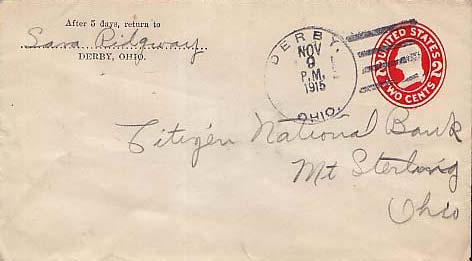 After 5 days, return to
Sara Ridgway
DERBY, OHIO.
DERBY,
NOV
9
P.M.
1915
OHIO.
UNITED STATES
2 2
TWO CENTS
Citizen National Bank
Mt Sterling
Ohio